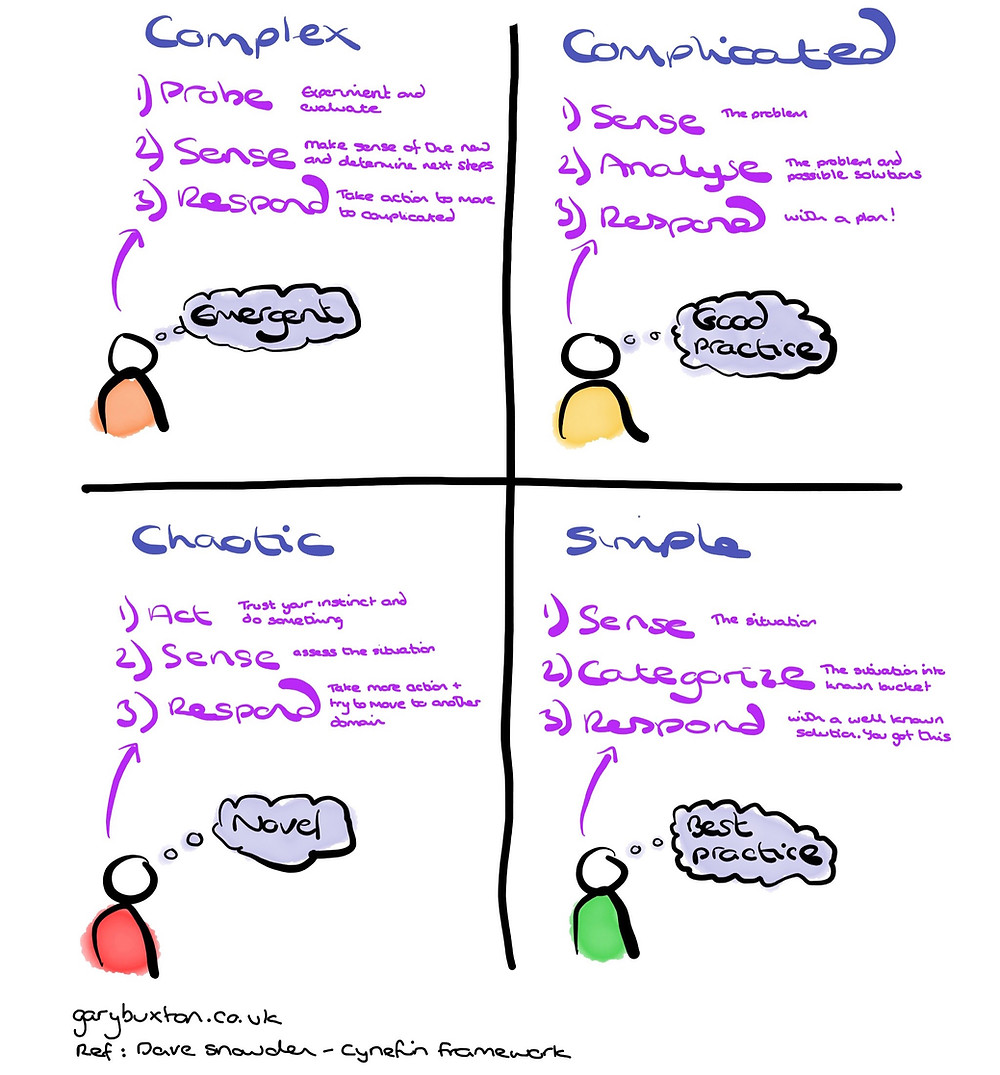 Complex
1) Probe Experiment and
evaluate
2) Sense make sense of the new
and determine next steps
3) Respond Take action to move
to complicated
Emergent
Complicated
1) Sense The problem
2) Analyse The problem and
possible solutions
3) Respond with a plan!
Good
practice
Chaotic
1) Act Trust your instinct and
do something
2) Sense assess the situation
3) Respond Take more action +
try to move to another
domain
Novel
Simple
1) Sense The situation
2) Categorize The situation into
known bucket
3) Respond with a well known
solution. You got this
Best
practice
garybuxton.co.uk
Ref: Dave Snowden - Cynefin Framework